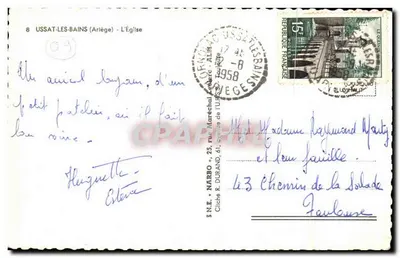 8 USSAT-LES-BAINS (Ariège) - L'Église
09
Un amical bonjour, d'un
petit patelin, où il fait
bon vivre.
Huguette
USSAT-LES-BAINS
17 H
-8
1958
ARIEGE
15F
REPUBLIQUE FRANÇAISE
S.N.E. - NARBO -, 25, rue Maréchal
Cliché R. DURAND, 61,
Mr et Madame Raymond
et leur famille
43 Chemin de la Salade
Toulouse
CPARAMA